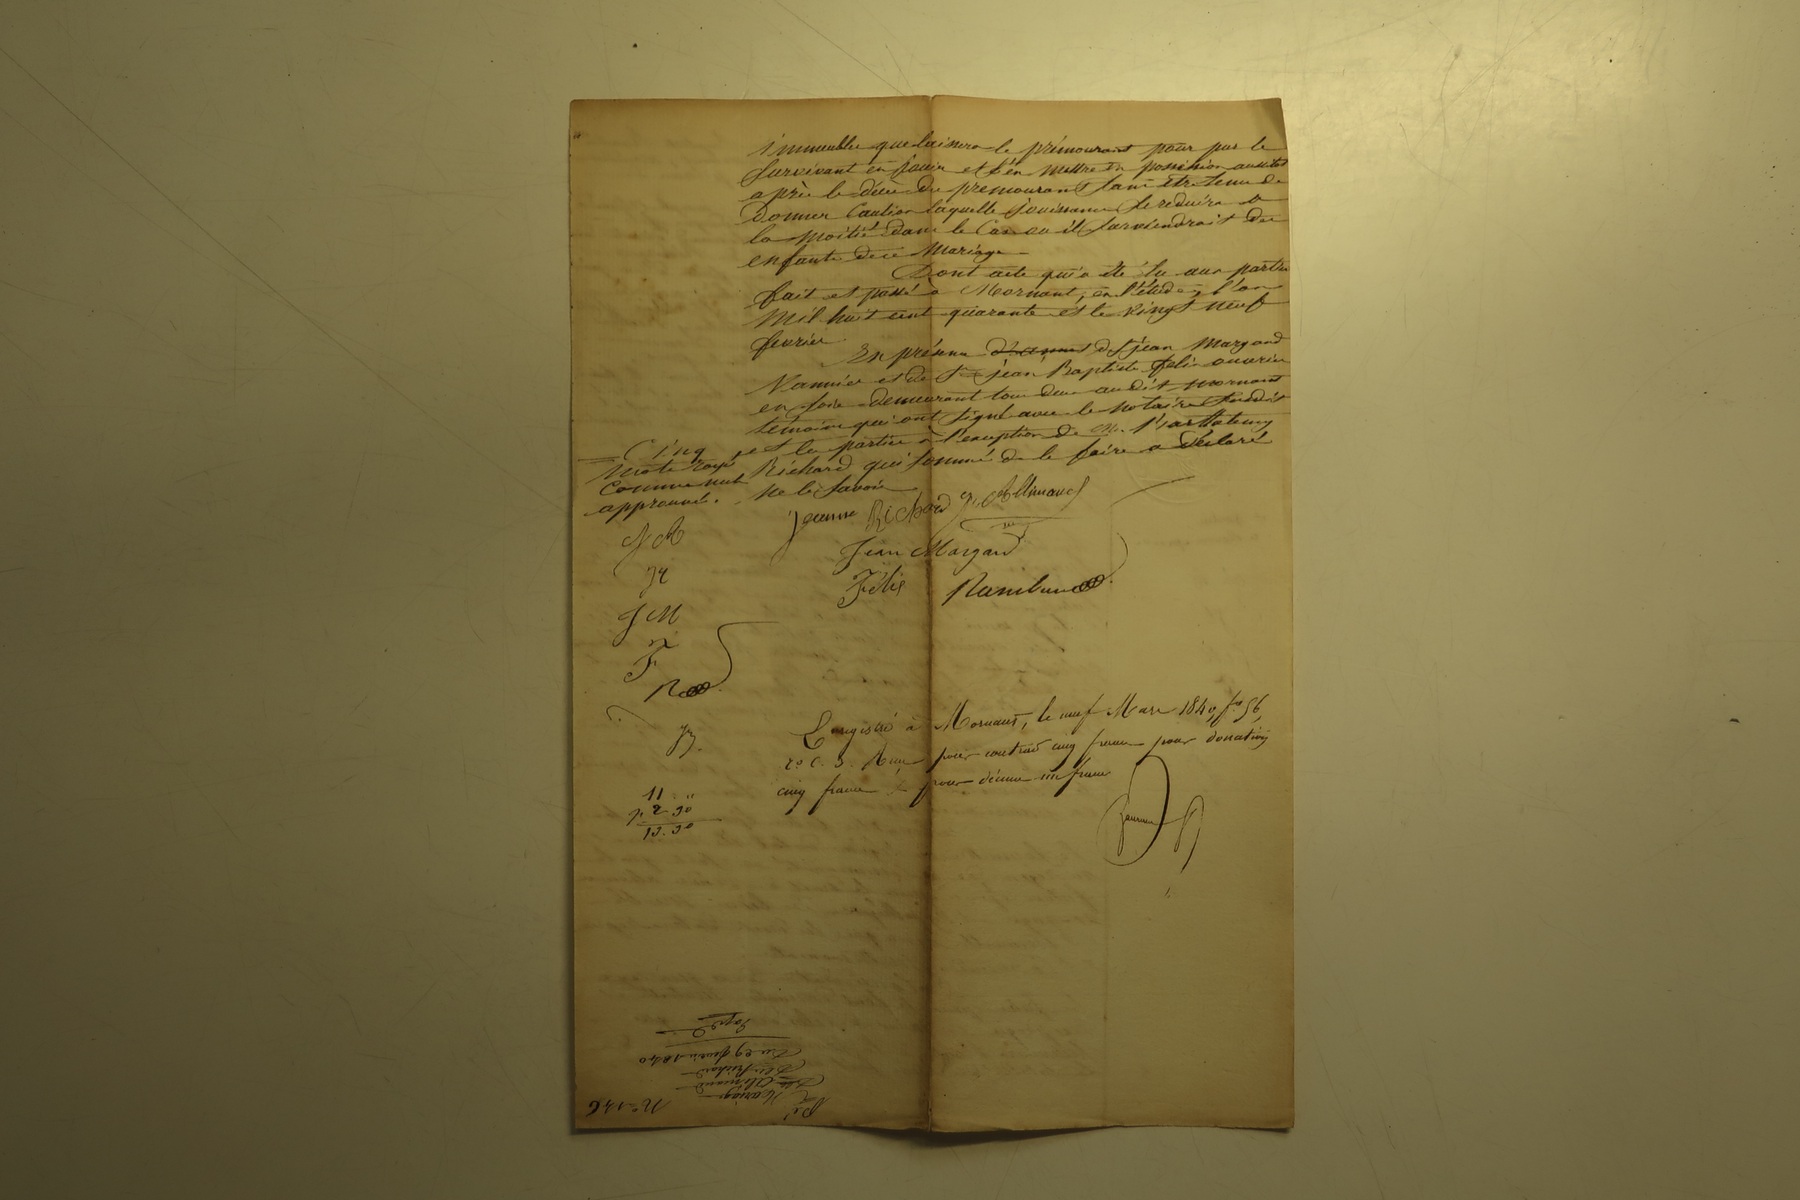 immeubles que laissera le prémourant pour par le
survivant en jouir et s'en mettre en possession aussitot
après le décès du premourant sans être tenu de
donner caution laquelle jouissance se reduira a
la moitié dans le cas ou il surviendrait des
enfants de ce mariage
Dont acte qui a été lu aux parties
fait et passé a Mornant, en l'étude, l'an
mil huit cent quarante et le vingt neuf
fevrier
En présence de Sr jean Margand
Vannier et de Sr jean Baptiste felix ouvrier
en soie demeurant tous deux audit mornant
temoins qui ont signé avec le notaire susdit
et les parties a l'exception de M. Barthelemy
Richard qui sommé de le faire a déclaré
ne le savoir
Cinq
mots rayés
comme nuls
approuvés.
Jeanne Richard J. Allimand
Jean Margand
Félix
JR
JM
F
Enregistré à Mornant, le neuf Mars 1840, fo 56,
ro c. 3. Reçu pour contrat cinq francs pour donation
cinq francs pour décime un franc
11 "
2 90
13.90
No 146
Mariage
Allimand
Richard
Du 29 fevrier 1840